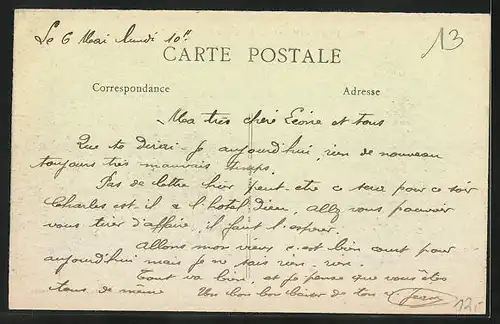 Le 6 Mai lundi 10h
13
CARTE POSTALE
Correspondance
Adresse
Ma très chère et tous
Que te dirai-je aujourd'hui, rien de nouveau
toujours très mauvais temps.
Pas de lettre hier peut-etre ce sera pour ce soir
Charles est il a l'hotel Dieu, allez vous pouvoir
vous tirer d'affaire, il faut l'esperer.
Allons mon vieux c'est bien court pour
aujourd'hui mais je ne sais rien, rien.
Tout va bien, et je pense que vous êtes
tous de même Un bon bon baiser de ton